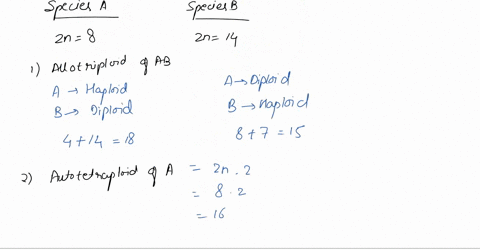 Species A Species B
2n = 8 2n = 14
1) Allotriploid of AB
A → Haploid A → Diploid
B → Diploid B → Haploid
4 + 14 = 18 8 + 7 = 15
2) Autotetraploid of A = 2n . 2
= 8 . 2
= 16